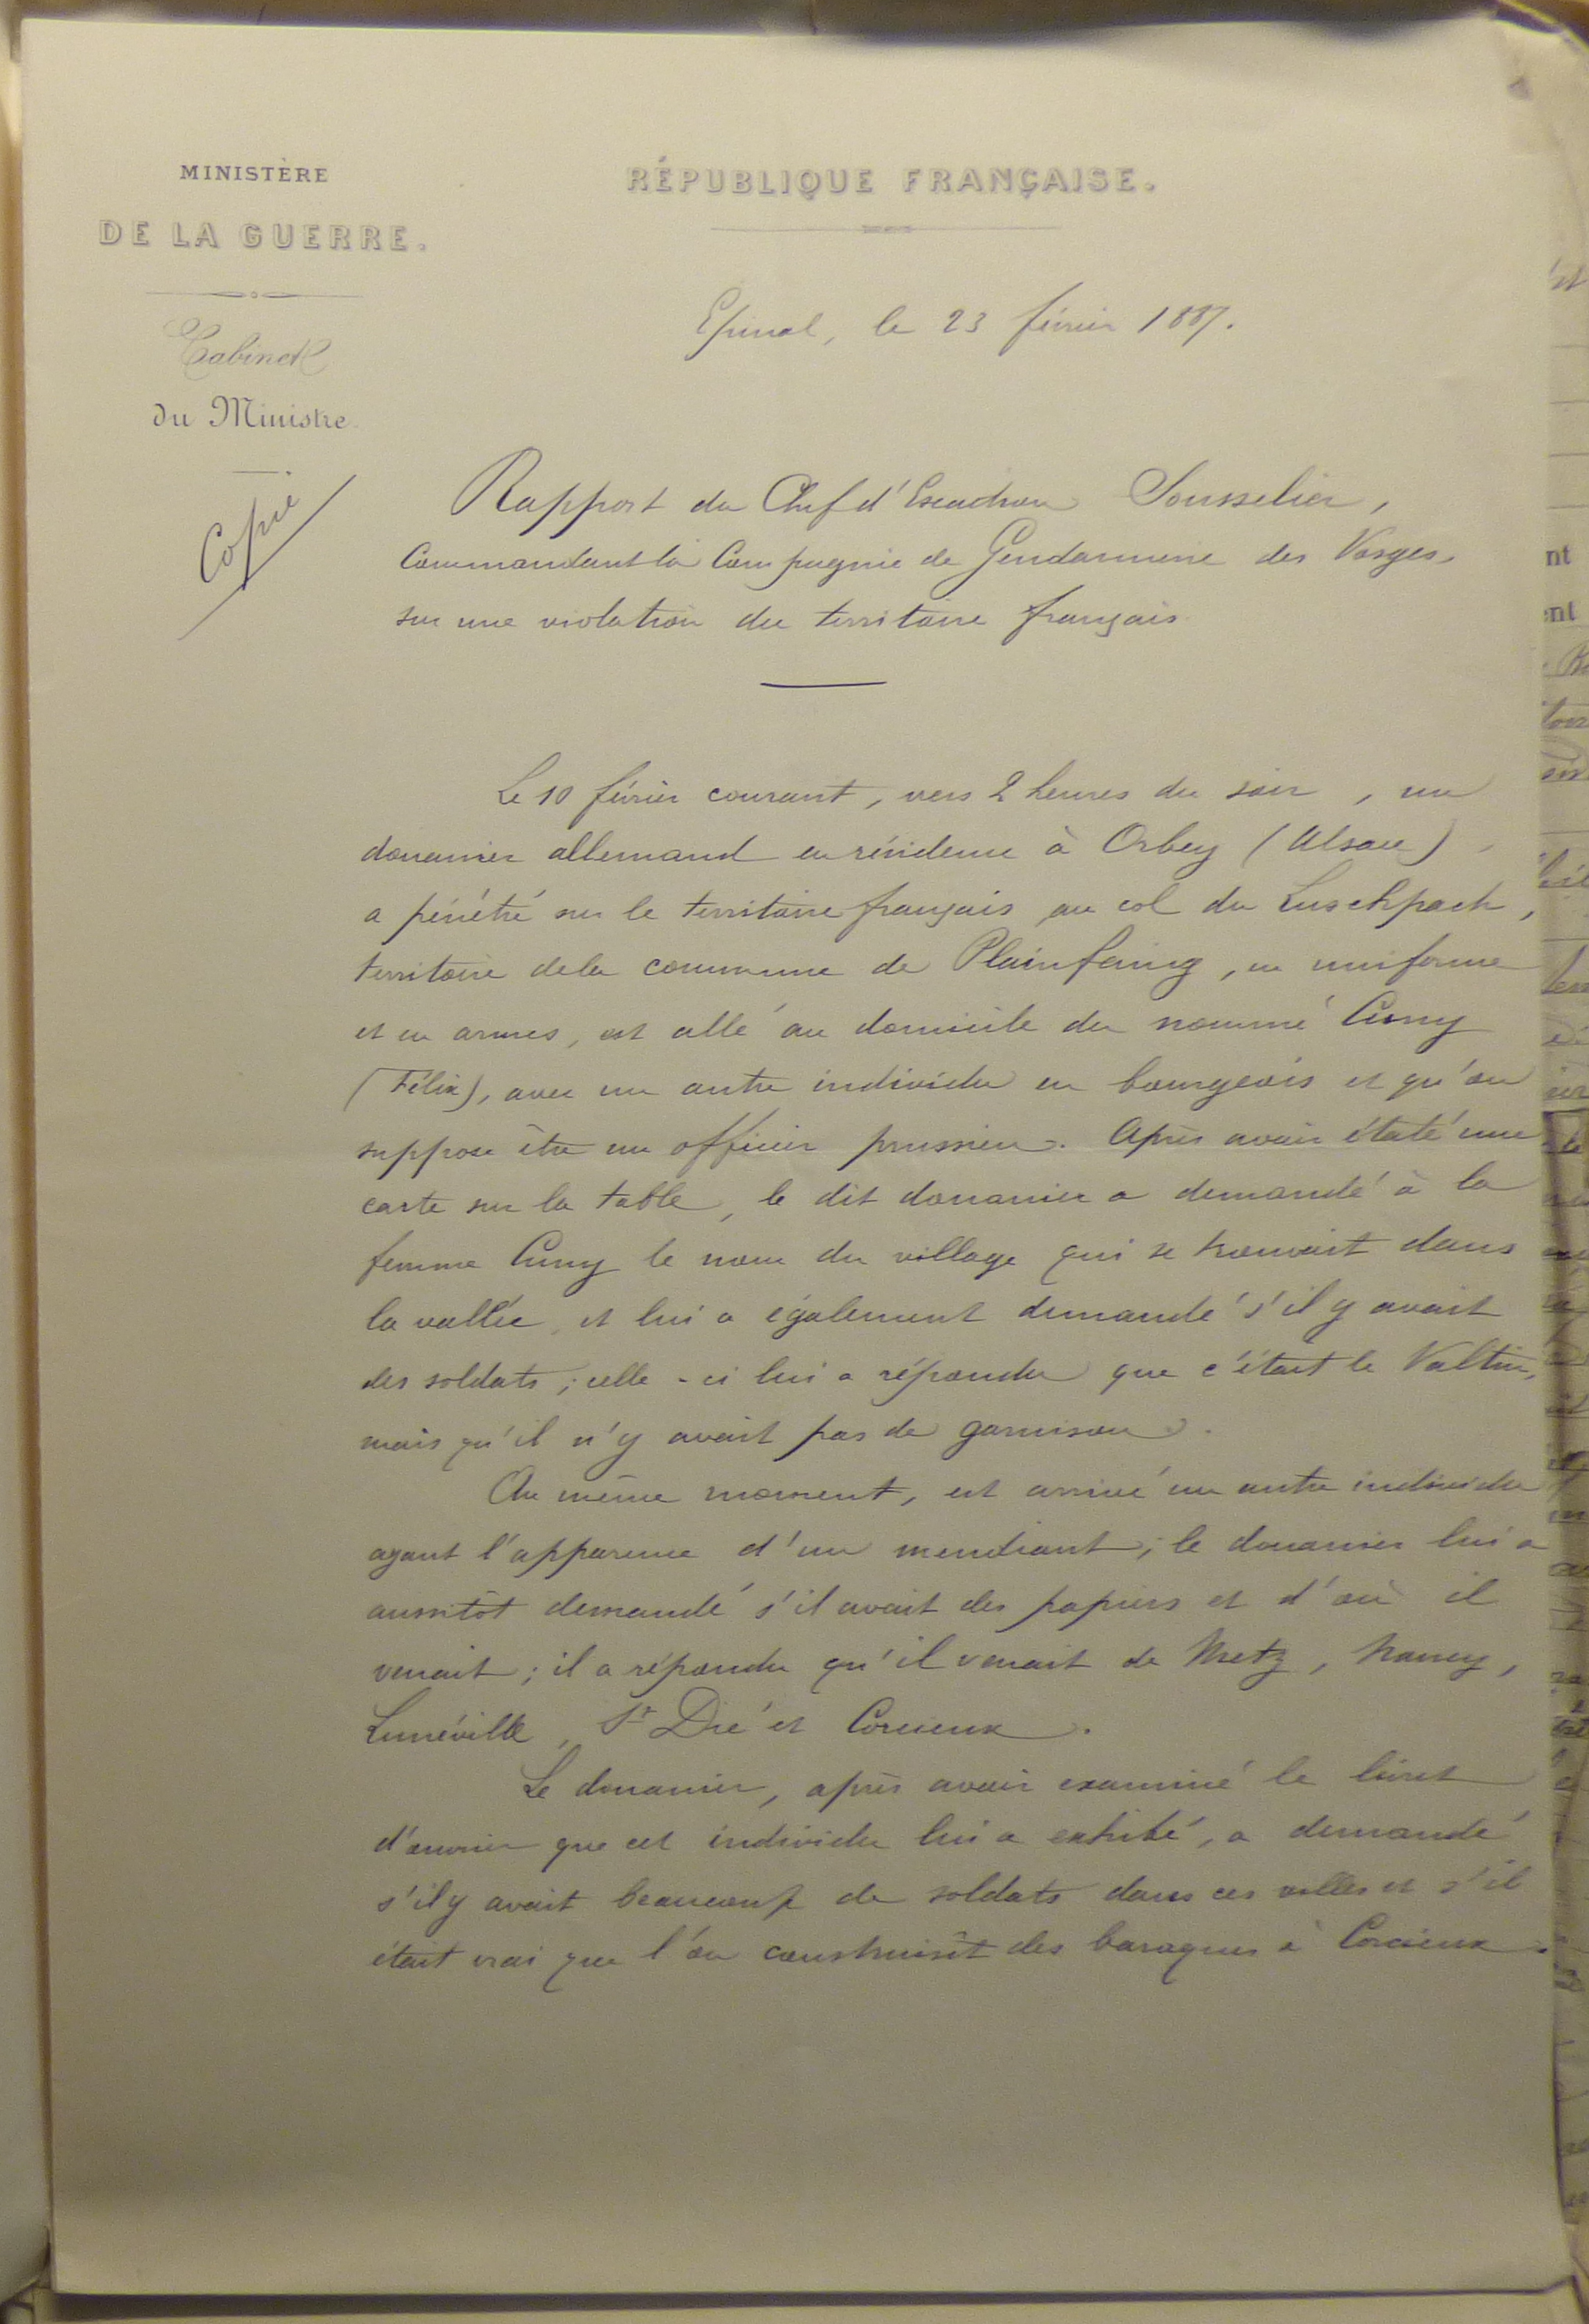 MINISTÈRE
DE LA GUERRE.
Cabinet
du Ministre.
Copie
RÉPUBLIQUE FRANÇAISE.
Epinal, le 23 février 1887.
Rapport du Chef d'Escadron Sousselier,
Commandant la Compagnie de Gendarmerie des Vosges,
sur une violation du territoire français.
Le 10 février courant, vers 2 heures du soir, un
douanier allemand en résidence à Orbey (Alsace),
a pénétré sur le territoire français au col du Luschpach,
territoire de la commune de Plainfaing, en uniforme
et en armes, est allé au domicile du nommé Cuny
(Félix), avec un autre individu en bourgeois et qu'on
suppose être un officier prussien. Après avoir étalé une
carte sur la table, le dit douanier a demandé à la
femme Cuny le nom du village qui se trouvait dans
la vallée, et lui a également demandé s'il y avait
des soldats; celle-ci lui a répondu que c'était le Valtin,
mais qu'il n'y avait pas de garnison.
Au même moment, est arrivé un autre individu
ayant l'apparence d'un mendiant; le douanier lui a
aussitôt demandé s'il avait des papiers et d'où il
venait; il a répondu qu'il venait de Metz, Nancy,
Lunéville, St Dié et Corcieux.
Le douanier, après avoir examiné le livret
d'ouvrier que cet individu lui a exhibé, a demandé
s'il y avait beaucoup de soldats dans ces villes et s'il
était vrai que l'on construisît des baraques à Corcieux.
nt
ent